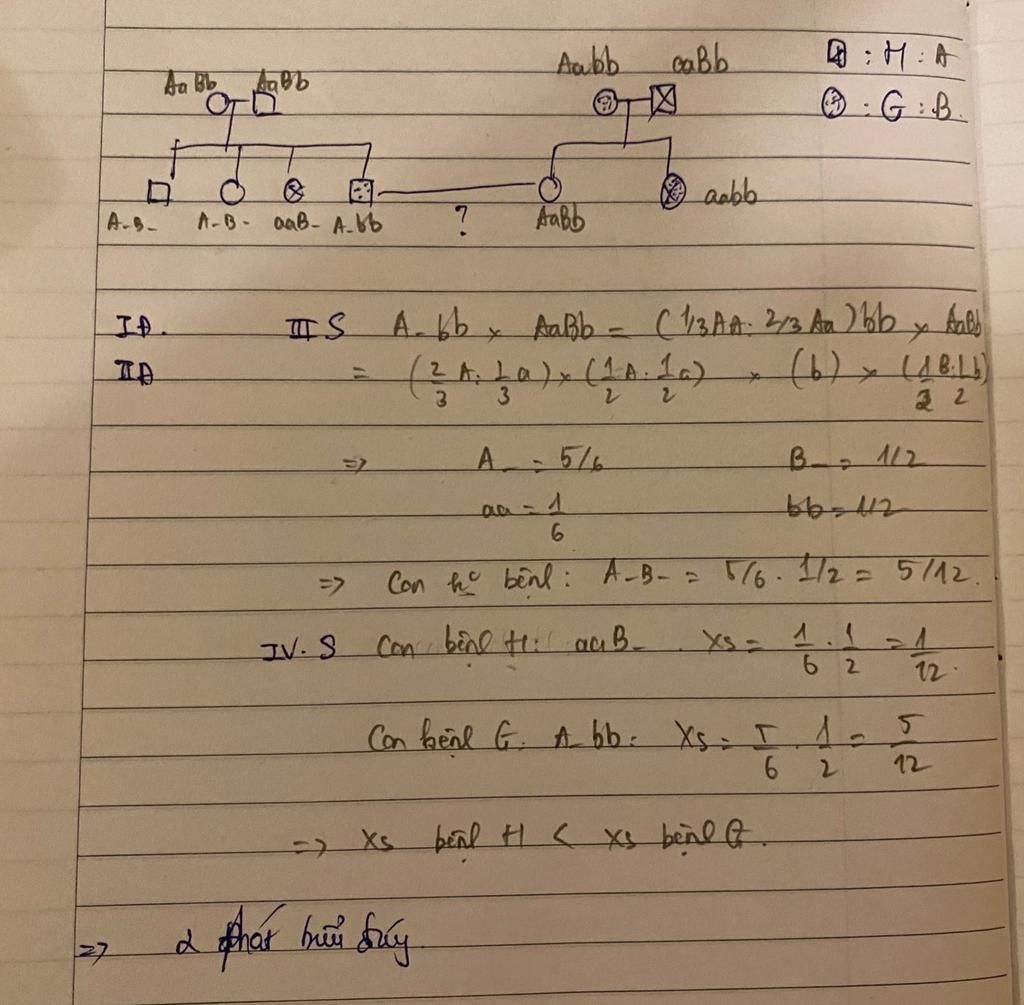 Aabb aaBb : H : A
AaBb AaBb : G : B.
A-B- A-B- aaB- A-bb ? AaBb aabb
IĐ. III S A-bb x AaBb = (1/3AA: 2/3 Aa)bb x AaBb
IIĐ = (2/3 A: 1/3 a) x (1/2 A. 1/2 a) x (b) x (1/2 B: 1/2 b)
=> A_ = 5/6 B_ = 1/2
aa = 1/6 bb = 1/2
=> Con ko bệnh: A-B- = 5/6 . 1/2 = 5/12.
IV. S Con bệnh H: aaB- . XS = 1/6 . 1/2 = 1/12.
Con bệnh G: A-bb: XS = 5/6 . 1/2 = 5/12
=> XS bệnh H < XS bệnh G.
=> 2 phát biểu đúng